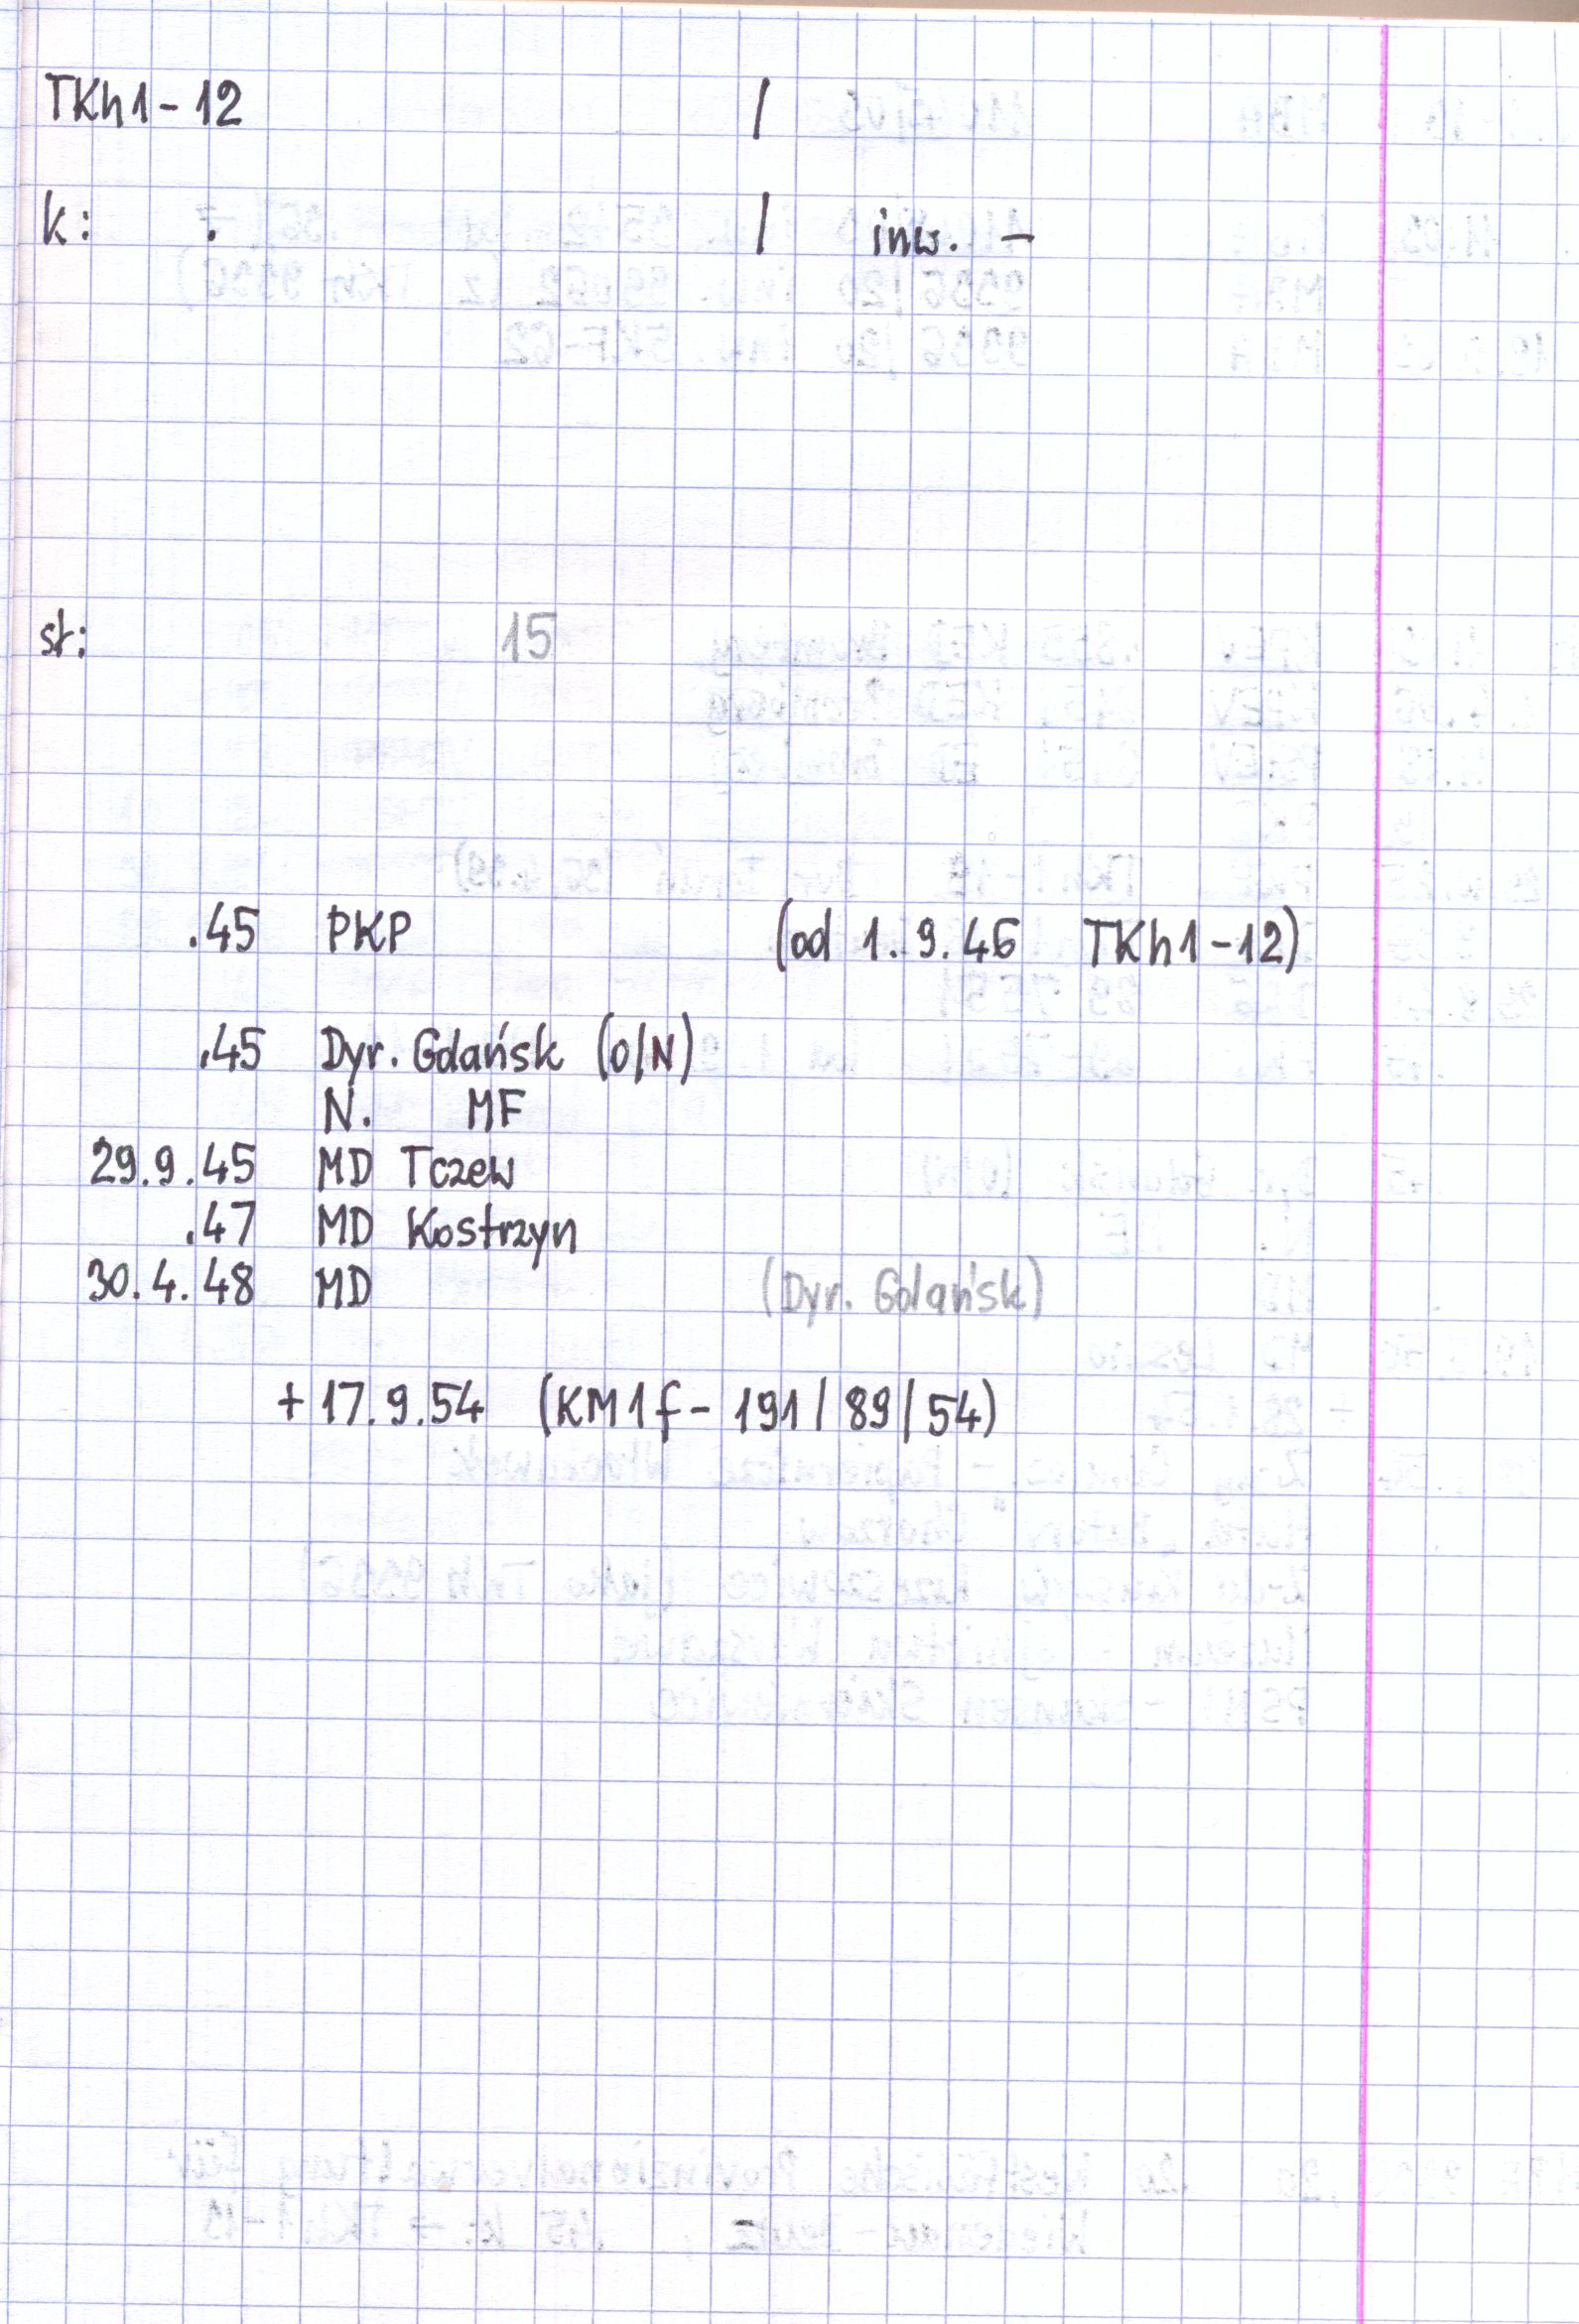 TKh1-12 /
k: . / inw. -
st: 15
.45 PKP (od 1.9.46 TKh1-12)
.45 Dyr. Gdańsk (O/N)
N. MF
29.9.45 MD Tczew
.47 MD Kostrzyn
30.4.48 MD (Dyr. Gdańsk)
+ 17.9.54 (KM1f- 191/89/54)